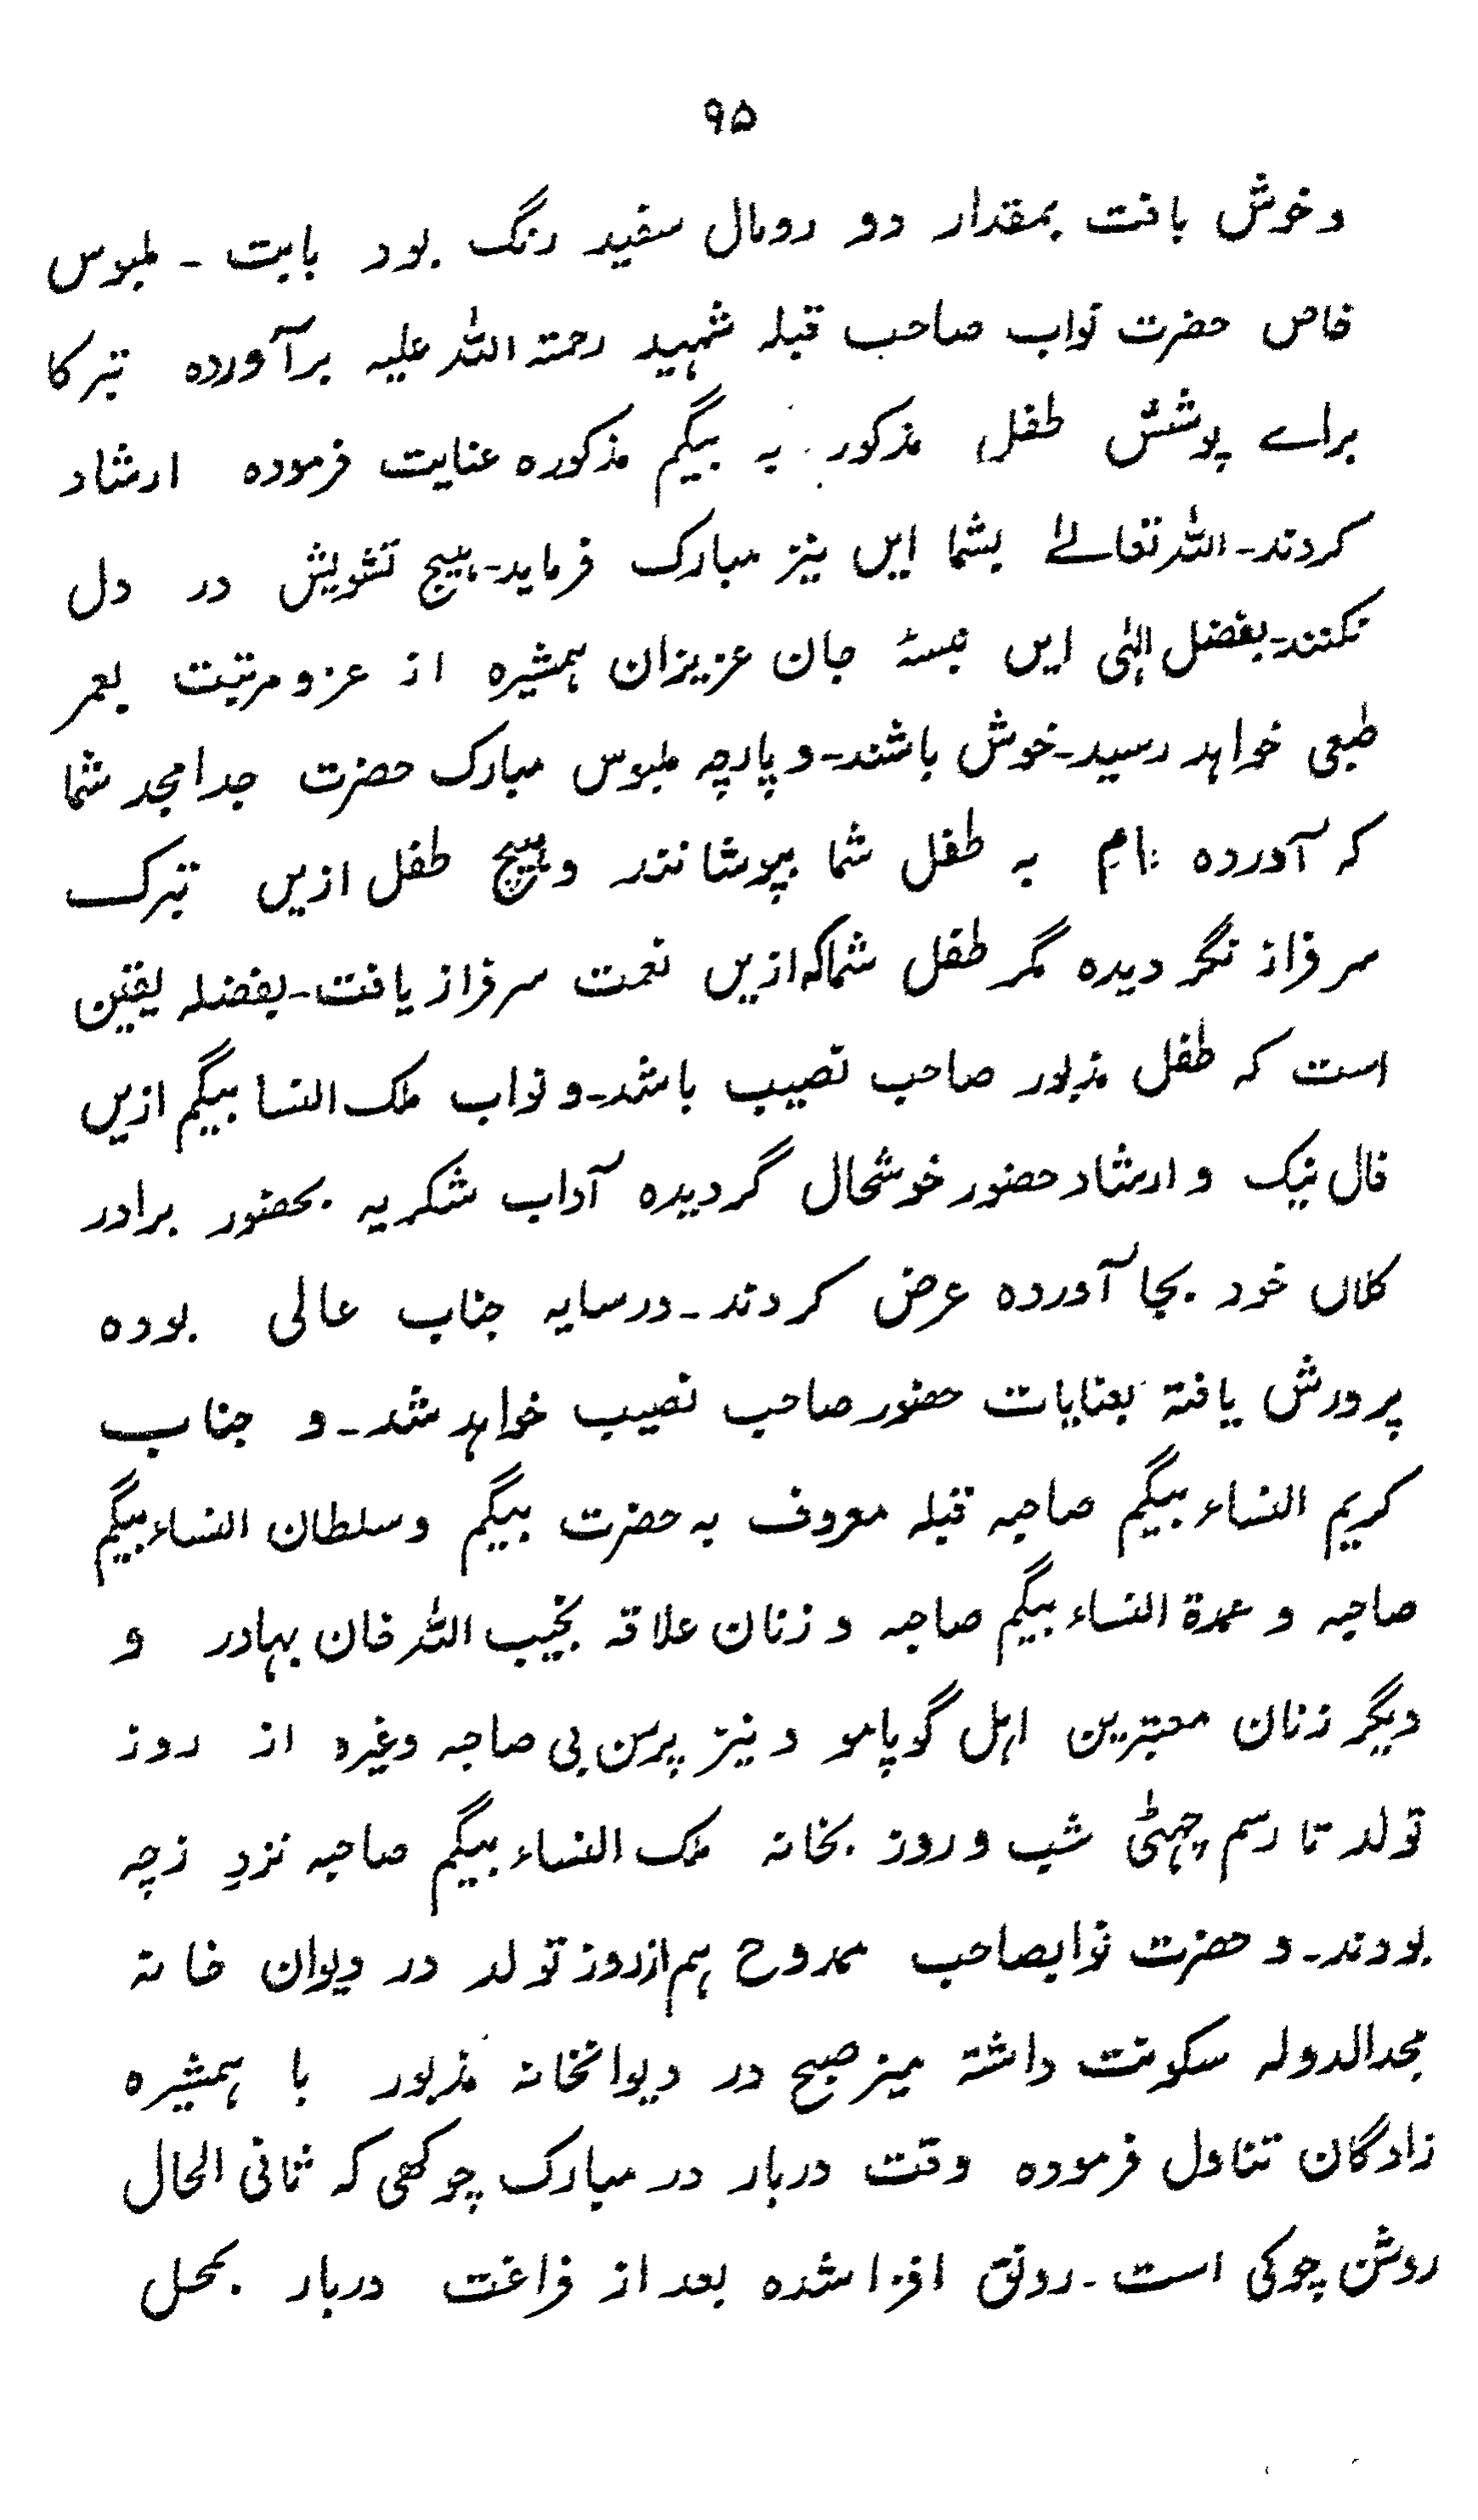 ۹۵
وخوش بافت بمقدار دو رومال سفید رنگ بود بابت ۔ ملبوس
خاص حضرت نواب صاحب قبلہ شہید رحمتہ اللہ علیہ برآوردہ تبرکا
براے پوشش طفل مذکور بہ بیگم مذکورہ عنایت فرمودہ ارشاد
کردند۔ اللہ تعالےٰ بشما ایں نیز مبارک فرماید۔ ہیچ تشویش در دل
نکنند۔ بفضل الہٰی ایں جان عزیزان ہمشیرہ از عز و مرتبت بعمر
طبعی خواہد رسید۔ خوش باشند۔ و پارچہ ملبوس مبارک حضرت جد امجد شما
کہ آوردہ ام بہ طفل شما بپوشانند وہیچ طفل ازیں تبرک
سرفراز نگردیدہ مگر طفل شما کہ ازیں نعمت سرفراز یافت۔ بفضلہ یقین
است کہ طفل مذبور صاحب نصیب باشد۔ و نواب ملک النسا بیگم ازیں
فال نیک و ارشاد حضور خوشحال گردیدہ آداب شکریہ بحضور برادر
کلاں خود بجا آوردہ عرض کردند۔ درسایہ جناب عالی بودہ
پرورش یافتہ بعنایات حضور صاحب نصیب خواہد شد۔ و جناب
کریم النساء بیگم صاحبہ قبلہ معروف بہ حضرت بیگم و سلطان النساء بیگم
صاحبہ و عمدۃ النساء بیگم صاحبہ و زنان علاقہ نجیب اللہ خان بہادر و
دیگر زنان معتبرین اہل گوپامو و نیز پرسن بی صاحبہ وغیرہ از روز
تولد تا رسم چہٹی شب و روز بخانہ ملک النساء بیگم صاحبہ نزدِ زچہ
بودند۔ و حضرت نوابصاحب ممدوح ہم از روز تولد در دیوان خانہ
مجدالدولہ سکونت داشتہ میز صبح در دیوانخانہ مذبور با ہمشیرہ
زادگان تناول فرمودہ وقت دربار در مبارک چوکھی کہ ثانی الحال
روشن چوکی است ۔ رونق افزا شدہ بعد از فراغت دربار بمحل